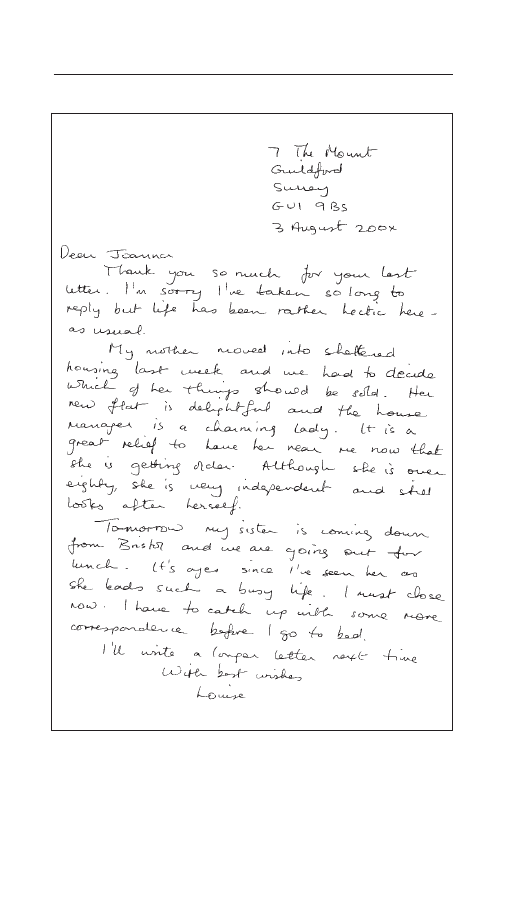 7 The Mount
Guildford
Surrey
GU1 9BS
3 August 200x
Dear Joanna
Thank you so much for your last
letter. I'm sorry I've taken so long to
reply but life has been rather hectic here -
as usual.
My mother moved into sheltered
housing last week and we had to decide
which of her things should be sold. Her
new flat is delightful and the house
manager is a charming lady. It is a
great relief to have her near me now that
she is getting older. Although she is over
eighty, she is very independent and still
looks after herself.
Tomorrow my sister is coming down
from Bristol and we are going out for
lunch. It's ages since I've seen her as
she leads such a busy life. I must close
now. I have to catch up with some more
correspondence before I go to bed.
I'll write a longer letter next time
With best wishes
Louise